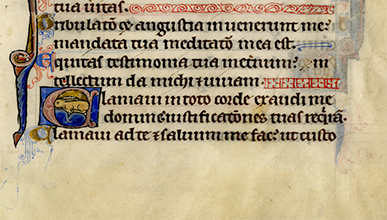 tua ũitas.
Tribulatõ et angustia in uenerunt me⁊
mandata tua meditatõ mea est.
Equitas testimonia tua in et̃num⁊ in
tellectum da michi ⁊ uiuam.
Clamaui in toto corde exaudi me
domine⁊ iustificatõnes tuas req̃rã.
Clamaui ad te ⁊ saluum me fac⁊ ut custo